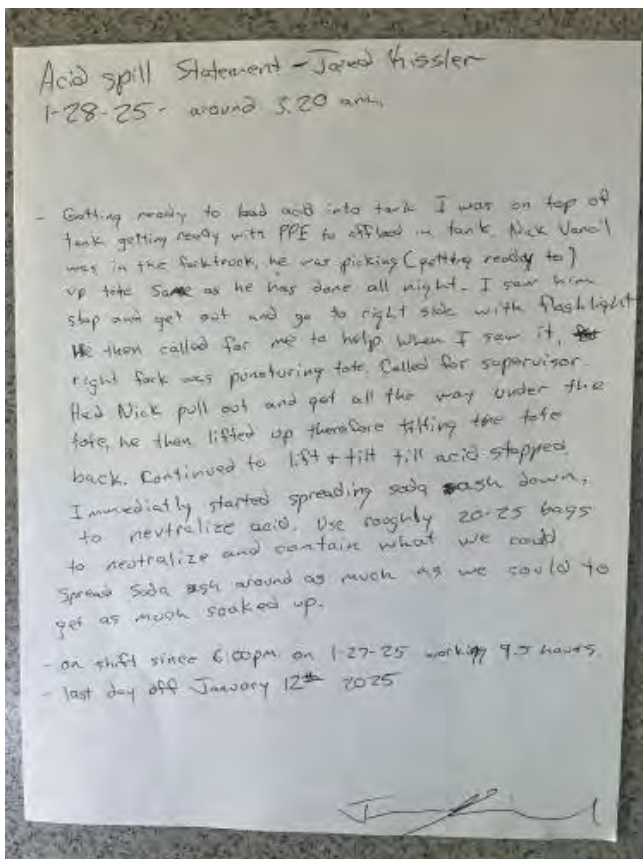 Acid spill Statement - Jared Kissler
1-28-25 - around 3:20 am.
- Getting ready to load acid into tank I was on top of
tank getting ready with PPE to offload in tank. Nick
was in the forktruck, he was picking (getting ready to)
up tote same as he has done all night. I saw him
stop and get out and go to right side with flashlight
He then called for me to help when I saw it,
right fork was puncturing tote. Called for supervisor.
Had Nick pull out and get all the way under the
tote, he then lifted up therefore tilting the tote
back. Continued to lift + tilt till acid stopped.
I immediatly started spreading soda ash down,
to neutralize acid. Use roughly 20-25 bags
to neutralize and contain what we could
Spread Soda ash around as much as we could to
get as much soaked up.
- on shift since 6:00pm on 1-27-25 working 9.5 hours.
- last day off January 12th 2025